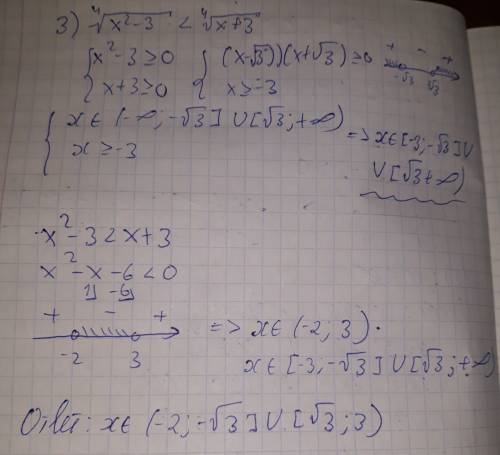 3) ⁴√(x²-3) < ⁴√(x+3)
{ x²-3 ≥ 0 { (x-√3))(x+√3) ≥ 0 + - +
{ x+3 ≥ 0 { x ≥ -3 -√3 √3
{ x ∈ (-∞; -√3] ∪ [√3; +∞) => x ∈ [-3; -√3] ∪
{ x ≥ -3 ∪ [√3 +∞)
x² - 3 < x + 3
x² - x - 6 < 0
1] -6]
+ - + => x ∈ (-2; 3).
-2 3 x ∈ [-3, -√3] ∪ [√3; +∞)
Ответ: x ∈ (-2; -√3] ∪ [√3; 3)